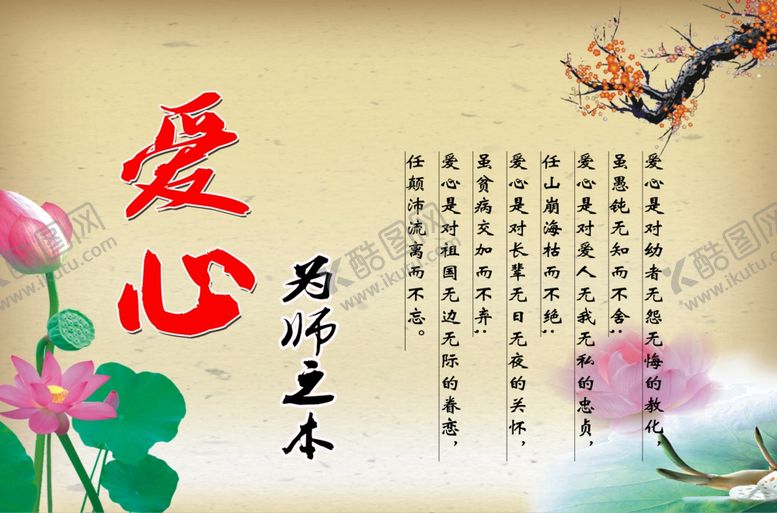 爱心
为师之本
爱心是对幼者无怨无悔的教化，
虽愚钝无知而不舍；
爱心是对爱人无我无私的忠贞，
任山崩海枯而不绝；
爱心是对长辈无日无夜的关怀，
虽贫病交加而不弃；
爱心是对祖国无边无际的眷恋，
任颠沛流离而不忘。
酷图网
www.ikutu.com
酷图网
www.ikutu.com
酷图网
www.ikutu.com